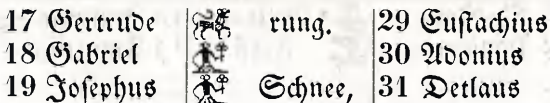 17 Gertrude rung. 29 Eustachius
18 Gabriel 30 Adonius
19 Josephus Schnee, 31 Detlaus